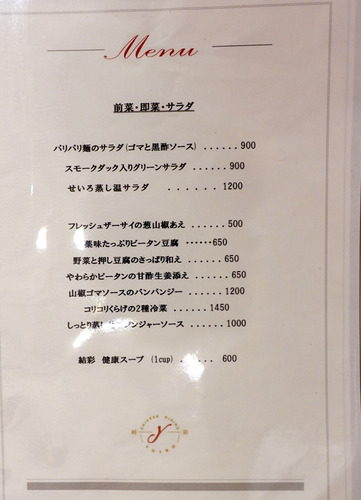 Menu
前菜・即菜・サラダ
パリパリ麺のサラダ(ゴマと黒酢ソース) ......900
スモークダック入りグリーンサラダ ......900
せいろ蒸し温サラダ ......1200
フレッシュザーサイの葱山椒あえ ......500
薬味たっぷりピータン豆腐 ······650
野菜と押し豆腐のさっぱり和え ......650
やわらかピータンの甘酢生姜添え ......650
山椒ゴマソースのバンバンジー ......1200
コリコリくらげの2種冷菜 ......1450
しっとり蒸し ンジャーソース ......1000
結彩 健康スープ (1cup) ...... 600
CHINESE DINING